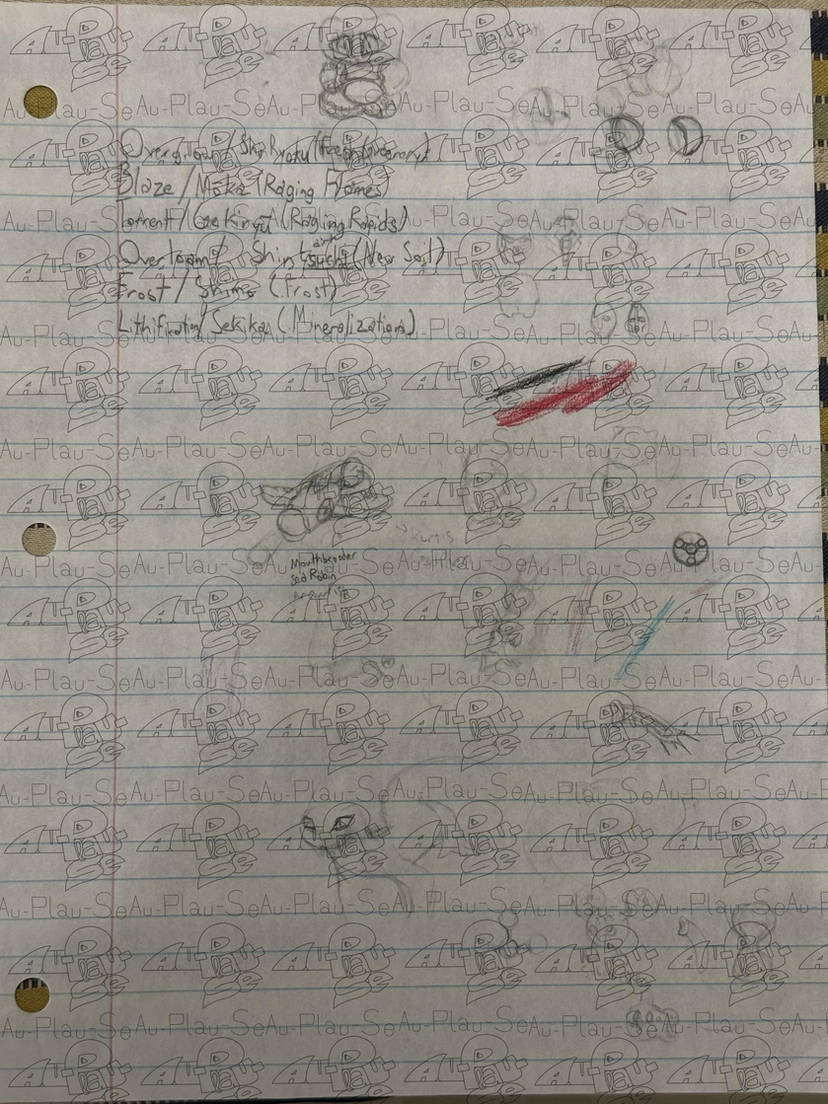 Overgrow/Shinryoku (Fresh Greenery)
Blaze/Mōka (Raging Flames)
Torrent/Gekiryū (Raging Rapids)
Overloam/Shintsuchi (New Soil)
Frost/Shimo (Frost)
Lithification/Sekika (Mineralization)
Kurtis
Mouthbrooder
Sea Robin
Au-Plau-Se